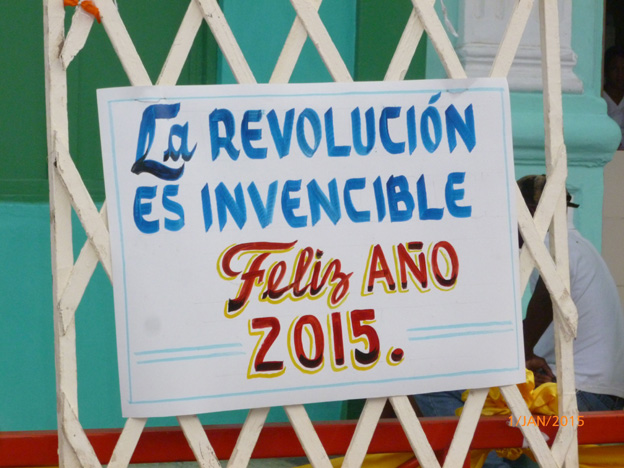 La REVOLUCIÓN
ES INVENCIBLE
Feliz AÑO
2015.
1/JAN/2015